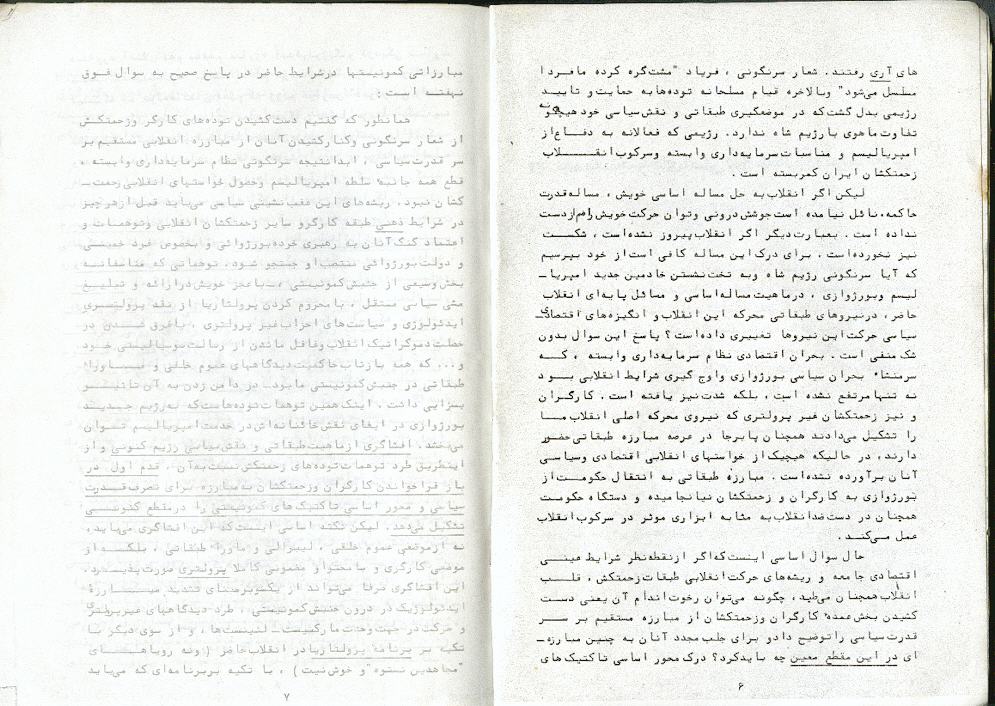 های آری رفتند. شعار سرنگونی ، فریاد "مشت گره کرده ما فردا
مسلسل می‌شود" وبالاخره قیام مسلحانه توده‌ها به حمایت و تایید
رژیمی بدل گشت که در موضعگیری طبقاتی و نقش سیاسی خود هیچگونه
تفاوت ماهوی با رژیم شاه ندارد. رژیمی که فعالانه به دفاع از
امپریالیسم و مناسبات سرمایه‌داری وابسته وسرکوب انقــلاب
زحمتکشان ایران کمربسته است .
لیکن اگر انقلاب به حل مساله اساسی خویش ، مساله قدرت
حاکمه، نائل نیامده است جوشش درونی وتوان حرکت خویش را هم از دست
نداده است . بعبارت دیگر اگر انقلاب پیروز نشده است ، شکست
نیز نخورده است . برای درک این مساله کافی است از خود بپرسیم
که آیا سرنگونی رژیم شاه وبه تخت نشستن خادمین جدید امپریا-
لیسم وبورژوازی ، در ماهیت مساله اساسی و مسائل پایه‌ای انقلاب
حاضر، درنیروهای طبقاتی محرکه این انقلاب و انگیزه‌های اقتصادی-
سیاسی حرکت این نیروها تغییری داده است؟ پاسخ این سوال بدون
شک منفی است . بحران اقتصادی نظام سرمایه‌داری وابسته ، کــه
سرمنشاء بحران سیاسی بورژوازی واوج گیری شرایط انقلابی بــود
نه تنها مرتفع نشده است ، بلکه شدت نیز یافته است . کارگــران
و نیز زحمتکشان غیر پرولتری که نیروی محرکه اصلی انقلاب مــا
را تشکیل می‌دادند همچنان پابرجا در عرصه مبارزه طبقاتی حضور
دارند، در حالیکه هیچیک از خواستهای انقلابی اقتصادی وسیاسی
آنان برآورده نشده است . مبارزه طبقاتی به انتقال حکومـت از
بورژوازی به کارگران و زحمتکشان نیانجامیده و دستگاه حکومت
همچنان در دست ضدانقلاب به مثابه ابزاری موثر در سرکوب انقلاب
عمل می‌کنـد .
حال سوال اساسی اینست که اگر از نقطه نظر شرایط عینــی
اقتصادی جامعه و ریشه‌های حرکت انقلابی طبقات زحمتکش ، قلــب
انقلاب همچنان می‌طپد، چگونه می‌توان رخوت اندام آن یعنی دست
کشیدن بخش عمده کارگران وزحمتکشان از مبارزه مستقیم بر ســر
قدرت سیاسی را توضیح داد و برای جلب مجدد آنان به چنین مبارزه-
ای در این مقطع معین چه باید کرد؟ درک محور اساسی تاکتیک‌های
۶
مبارزاتی کمونیستها درشرایط حاضر در پاسخ صحیح به سوال فـوق
نهفته است :
همانطور که گفتیم دست کشیدن توده‌های کارگر وزحمتکش
از شعار سرنگونی وکنار کشیدن آنان از مبارزه انقلابی مستقیم بر
سر قدرت سیاسی ، ابدا نتیجه سرنگونی نظام سرمایه‌داری وابسته ،
قطع همه جانبه سلطه امپریالیسم وحصول خواستهای انقلابی زحمت-
کشان نبود. ریشه‌های این عقب نشینی سیاسی می‌باید قبل از هر چیز
در شرایط ذهنی طبقه کارگر و سایر زحمتکشان انقلابی وتوهمات و
اعتماد گنگ آنان به رهبری خرده بورژوائی و بخصوص فرد خمینـی
و دولت بورژوائی منتصب او جستجو شود. توهماتی که متاسفانــه
بخش وسیعی از جنبش کمونیستی ، با عجز خویش در ارائه و تبلیــغ
مشی سیاسی مستقل ، با محروم کردن پرولتاریا از نقد پرولتــری
ایدئولوژی و سیاست‌های احزاب غیر پرولتری ، با غرق شــدن در
خصلت دموکراتیک انقلاب وغافل ماندن از رسالت سوسیالیستی خـود
و... که همه بازتاب حاکمیت دیدگاههای عموم خلقی و مــاوراء
طبقاتی در جنبش کمونیستی ما بود، در دامن زدن به آن تاثیــر
بسزایی داشت . اینک همین توهمات توده‌هاست که به رژیم جدیــد
بورژوازی در ایفای نقش خائنانه‌اش در خدمت امپریالیسم تــوان
می‌بخشد. افشاگری از ماهیت طبقاتی و نقش سیاسی رژیم کنونی و از
اینطریق طرد توهمات توده‌های زحمتکش نسبت به آن ، قدم اول در
باز فراخواندن کارگران وزحمتکشان به مبارزه برای تصرف قــدرت
سیاسی و محور اساسی تاکتیک‌های کمونیستی را درمقطع کنونــی
تشکیل می‌دهد. لیکن نکته اساسی اینست که این افشاگری می‌باید،
نه از موضعی عموم خلقی ، لیبرالی و ماوراء طبقاتی ، بلکــه از
موضعی کارگری و با محتوا و مضمونی کاملا پرولتری صورت پذیـرد.
این افشاگری صرفا می‌تواند از یکسو بر مبنای تشدید مبــارزه
ایدئولوژیک در درون جنبش کمونیستی ، طرد دیدگاههای غیرپرولتری
و حرکت در جهت وحدت مارکسیست - لنینیست‌ها، و از سوی دیگر بـا
تکیه بر برنامه پرولتاریا در انقلاب حاضر (ونه رویاهــای
"مجاهدین نستوه" و خوش نیت ) ، با تکیه بربرنامه‌ای که می‌باید
۷